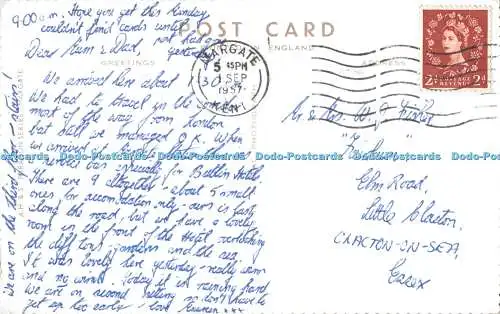 9.00 a.m. Hope you get this Monday,
couldn't find cards until
yesterday.
POST CARD
ENGLAND
GREETINGS
ADDRESS
MARGATE
5 45 PM
SEP
1957
KENT
2d POSTAGE REVENUE 2d
Dear Mum & Dad,
We arrived here about
We had to travel in the
most of the way from London
but still we managed O.K. When
we arrived at
special bus specially for Butlin Hotels
There are 9 altogether, about 5 small
ones for accommodation only - ours is last
along the road, but we have a lovely
room in the front of the Hotel overlooking
the cliff tops, gardens and the sea.
It was lovely here yesterday - really warm
and no wind. Today it is raining hard
We are on second sitting so don't have to
get up too early - love Eileen xxx
We are on the third floor - stairs!
Mr & Mrs. W. J. Fisher
Elm Road,
Little Clacton,
CLACTON-ON-SEA,
Essex
Dodo-Postcards Dodo-Postcards Dodo-Postcards Dodo-Postcards Dodo-Postcards Dodo-Postcards